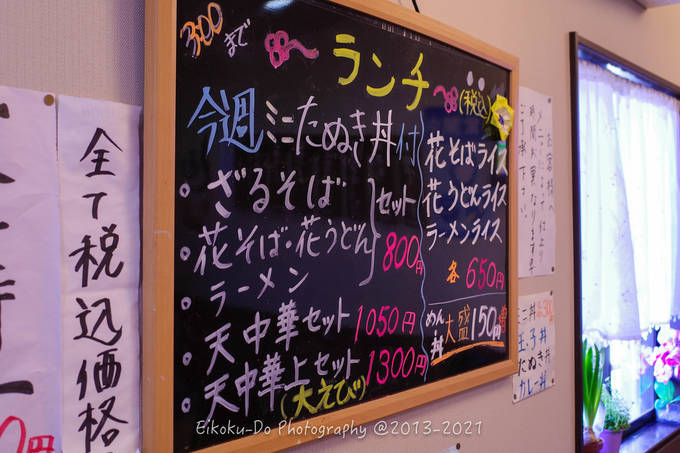 3:00まで
ランチ
(税込)
今週ミニたぬき丼付
ざるそば
花そば・花うどん
ラーメン
セット
800円
天中華セット 1050円
天中華上セット 1300円
(大えび)
花そばライス
花うどんライス
ラーメンライス
各650円
めん
丼
大盛150円増
全て税込価格
ミニ丼
玉子丼
たぬき丼
カレー丼
Eikoku-Do Photography @2013-2021